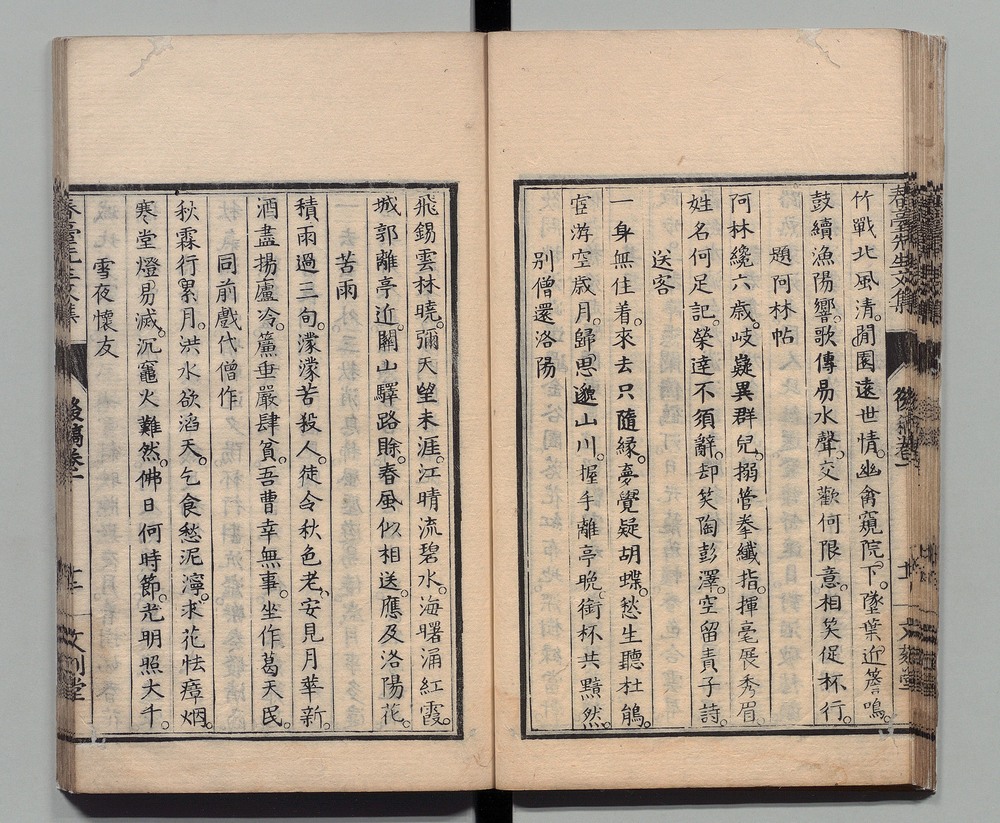 竹戰北風清。閒園遠世情。幽禽窺院下。墜葉近簷鳴。
鼓續漁陽響。歌傳易水聲。交歡何限意。相笑促杯行。
題阿林帖
阿林纔六歲。岐嶷異群兒。搦管拳纖指。揮毫展秀眉。
姓名何足記。榮達不須辭。却笑陶彭澤。空留責子詩。
送客
一身無住着。來去只隨緣。夢覺疑胡蝶。愁生聽杜鵑。
宦游空歲月。歸思邈山川。握手離亭晚。銜杯共黯然。
別僧還洛陽
飛錫雲林曉。彌天望未涯。江晴流碧水。海曙涌紅霞。
城郭離亭近。關山驛路賖。春風似相送。應及洛陽花。
苦雨
積雨過三旬。濛濛苦殺人。徒令秋色老。安見月華新。
酒盡揚廬冷。簾垂嚴肆貧。吾曹幸無事。坐作葛天民。
同前戲代僧作
秋霖行累月。洪水欲滔天。乞食愁泥濘。求花怯瘴烟。
寒堂燈易滅。沉竈火難然。佛日何時節。光明照大千。
雪夜懷友
春臺先生文集
後稿卷一